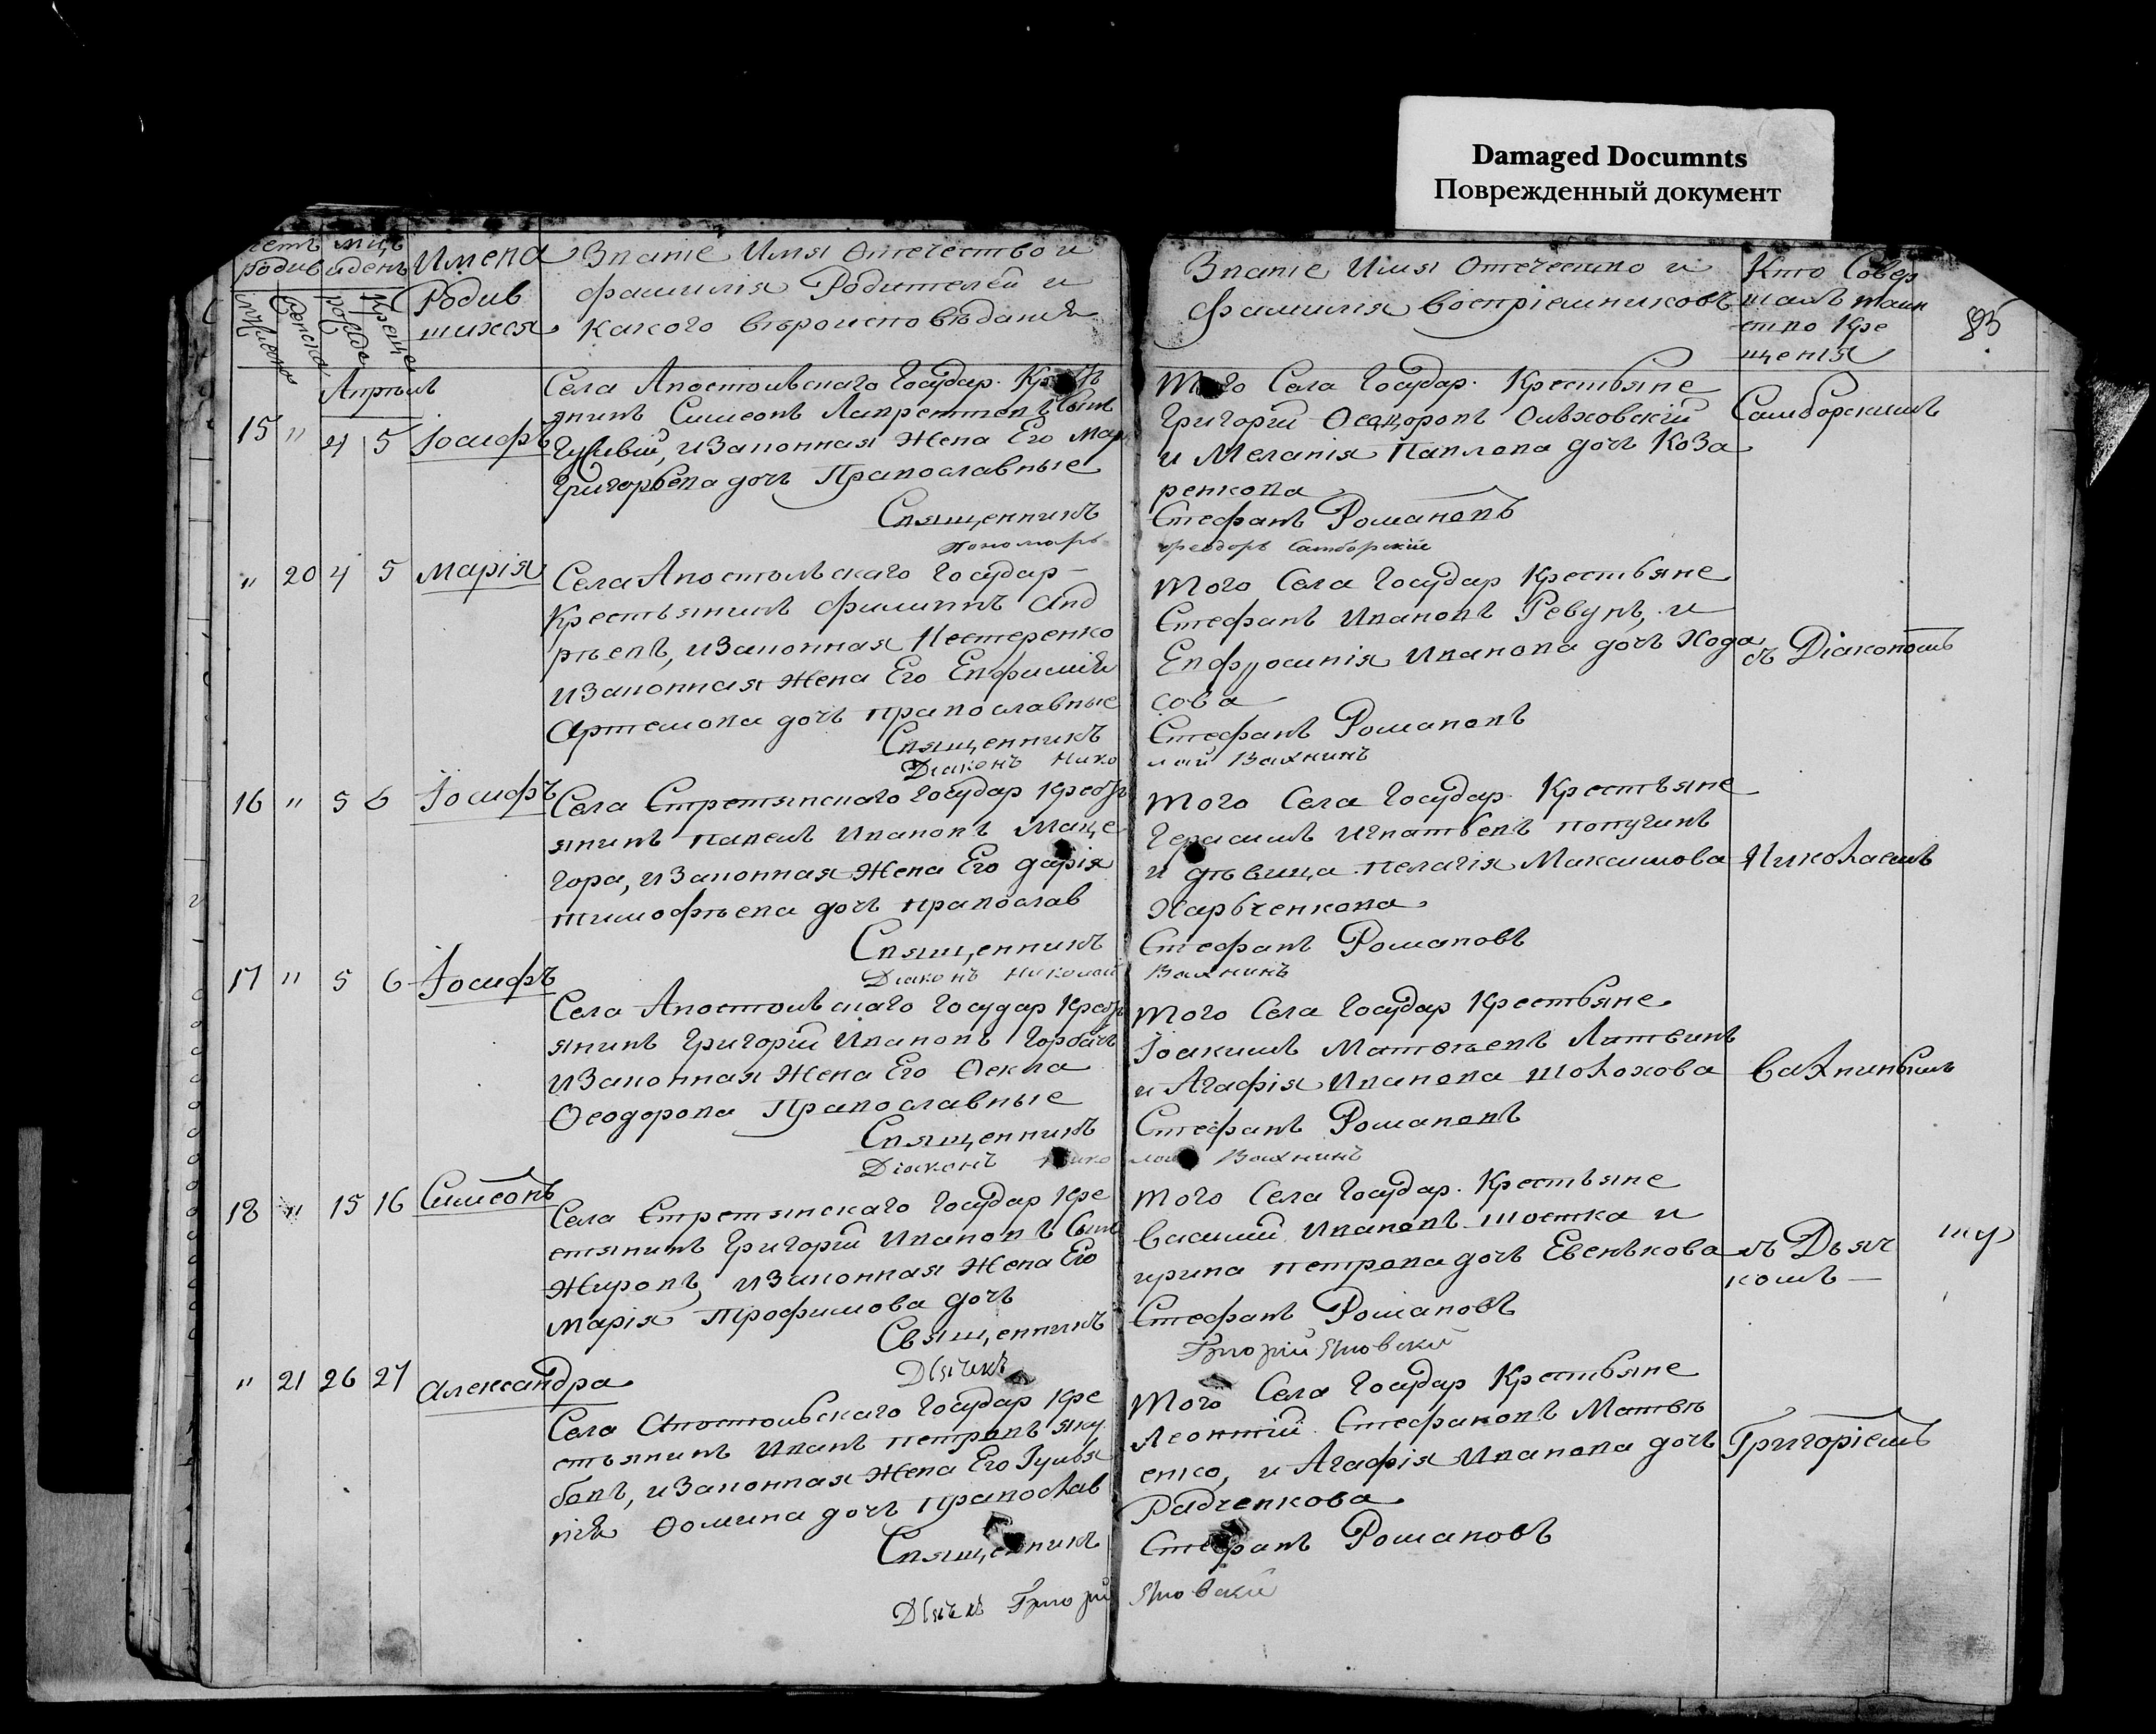 Damaged Documnts
Поврежденный документ
85
Имена
Родив
шихся
Званіе Имя Отечество и
фамилія Родителей и
какого вѣроисповѣданія
Званіе Имя Отечество и
фамилія воспріемниковъ
Кто Совер
шалъ таин
ство Кре
щенія
Апрѣль
15 " 4 5 Іосифъ
Села Апостольскаго Государ. Крестъ
янинъ Симеонъ Лаврентіевъ Сынъ
изаконная Жена Его Мар
Григорьева дочь Православные
Священникъ
пономарь
Того Села Государ. Крестьяне
Григорій Ѳеодоровъ Ольховскій
и Меланія Павлова дочь Коза
ренкова
Стефанъ Романовъ
Феодоръ Самборскій
Самборскимъ
" 20 4 5 Марія
Села Апостольскаго Государ-
Крестьянинъ Филиппъ Анд
рѣевъ, изаконная Нестеренко
изаконная Жена Его Евфимія
Артемова дочь православные
Священникъ
Діаконъ Нико
Того Села Государ Крестьяне
Стефанъ Ивановъ Ревунъ, и
Евфросинія Иванова дочь Хода
сова
Стефанъ Романовъ
лай Вахнинъ
съ Діакономъ
16 " 5 6 Іосифъ
Села Стретянскаго Государ Кресть
янинъ Павелъ Ивановъ Маце
гора, изаконная Жена Его дарія
тимофѣева дочь православ
Священникъ
Діаконъ Николай
Того Села Государ. Крестьяне
Герасимъ Игнатьевъ попугинъ
и дѣвица пелагія Максимова
Харьченкова
Стефанъ Романовъ
Вахнинъ
Николаемъ
17 " 5 6 Іосифъ
Села Апостольскаго Государ Кресть
янинъ Григорій Ивановъ Горбачъ
изаконная Жена Его Ѳекла
Ѳеодорова Православные
Священникъ
Діаконъ Нико
Того Села Государ Крестьяне
Іоакимъ Матвѣевъ Литвинъ
и Агафія Иванова Шолохова
Стефанъ Романовъ
лай Вахнинъ
Вахнинымъ
18 " 15 16 Симеонъ
Села Стретянскаго Государ Кре
стянинъ Григорій Ивановъ Сынъ
Жировъ, изаконная Жена Его
Марія Трофимова дочь
Священникъ
Дьячекъ
Того Села Государ. Крестьяне
Василий Ивановъ Шостка и
ирина петрова дочь Евенкова
Стефанъ Романовъ
Григорій Яновскій
съ Дьяч
комъ —
" 21 26 27 Александра
Села Апостольскаго Государ Кре
стьянинъ Иванъ петровъ Яку
бовъ, изаконная Жена Его Іуліа
нія Ѳомина дочь православ
Священникъ
Дьячекъ Григорій
Того Села Государ Крестьяне
Леонтій Стефановъ Матвѣ
енко, и Агафія Иванова дочь
Радченкова
Стефанъ Романовъ
Яновскій
Григоріемъ